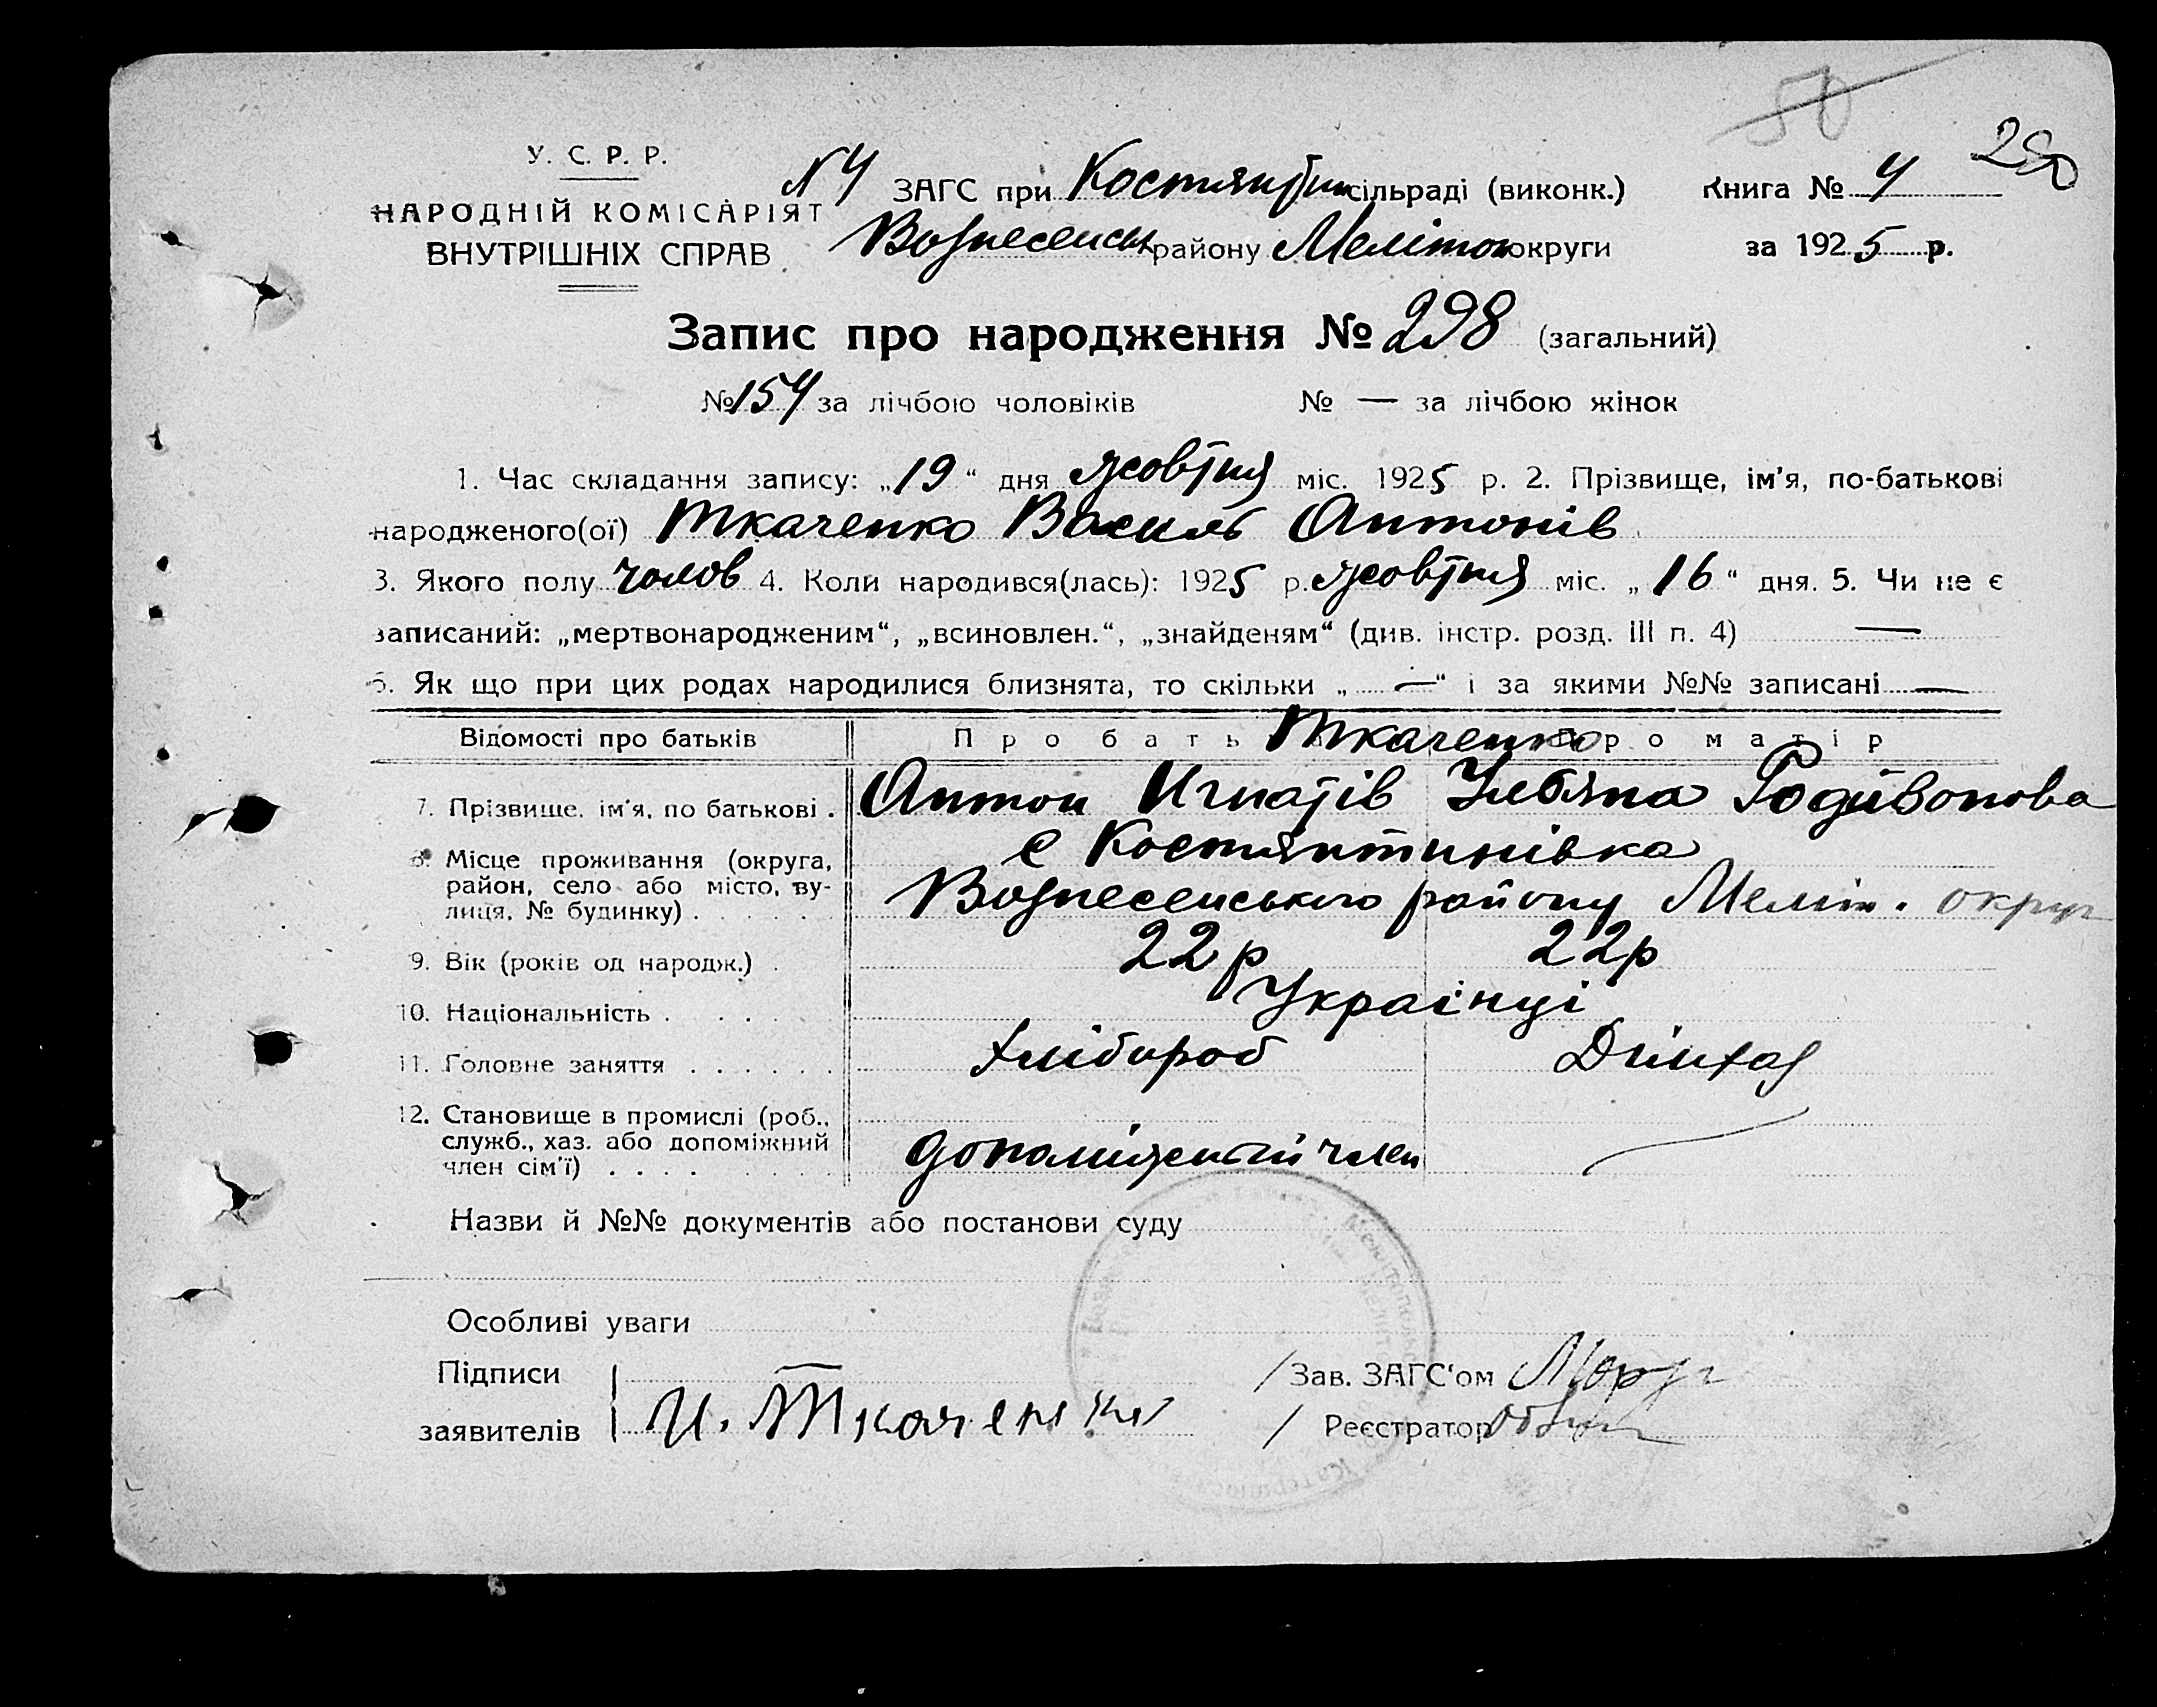 50
280
У. С. Р. Р.
НАРОДНІЙ КОМІСАРІЯТ
ВНУТРІШНІХ СПРАВ
N4 ЗАГС при Костянтин сільраді (виконк.) Книга № 4
Вознесенськ району Меліток округи за 1925 р.
Запис про народження № 298 (загальний)
№ 154 за лічбою чоловіків № — за лічбою жінок
1. Час складання запису: „19“ дня жовтня міс. 1925 р. 2. Прізвище, ім'я, по-батькові
народженого(ої) Ткаченко Василь Антонів
3. Якого полу чолов 4. Коли народився(лась): 1925 р. жовтня міс. „16“ дня. 5. Чи не є
записаний: „мертвонародженим“, „всиновлен.“, „знайденям“ (див. інстр. розд. III п. 4) —
6. Як що при цих родах народилися близнята, то скільки „—“ і за якими №№ записані —
Відомості про батьків Про бать Ткаченко Про матір
7. Прізвище, ім'я, по батькові . Антон Игнатів Улбяна Родивонова
8. Місце проживання (округа, с Костянтинівка
район, село або місто, ву-
лиця, № будинку) . . . . . . Вознесенського району Меліт. округ
9. Вік (років од народж.) . 22 р 22 р
10. Національність . . . . . Українці
11. Головне заняття . . . . . . Хлібороб Дімхаз
12. Становище в промислі (роб.,
служб., хаз. або допоміжний
член сім'ї) . . . . . . . допоміжний член
Назви й №№ документів або постанови суду
Особливі уваги —
Підписи / Зав. ЗАГС'ом
заявителів И. Ткаченко / Реєстратор